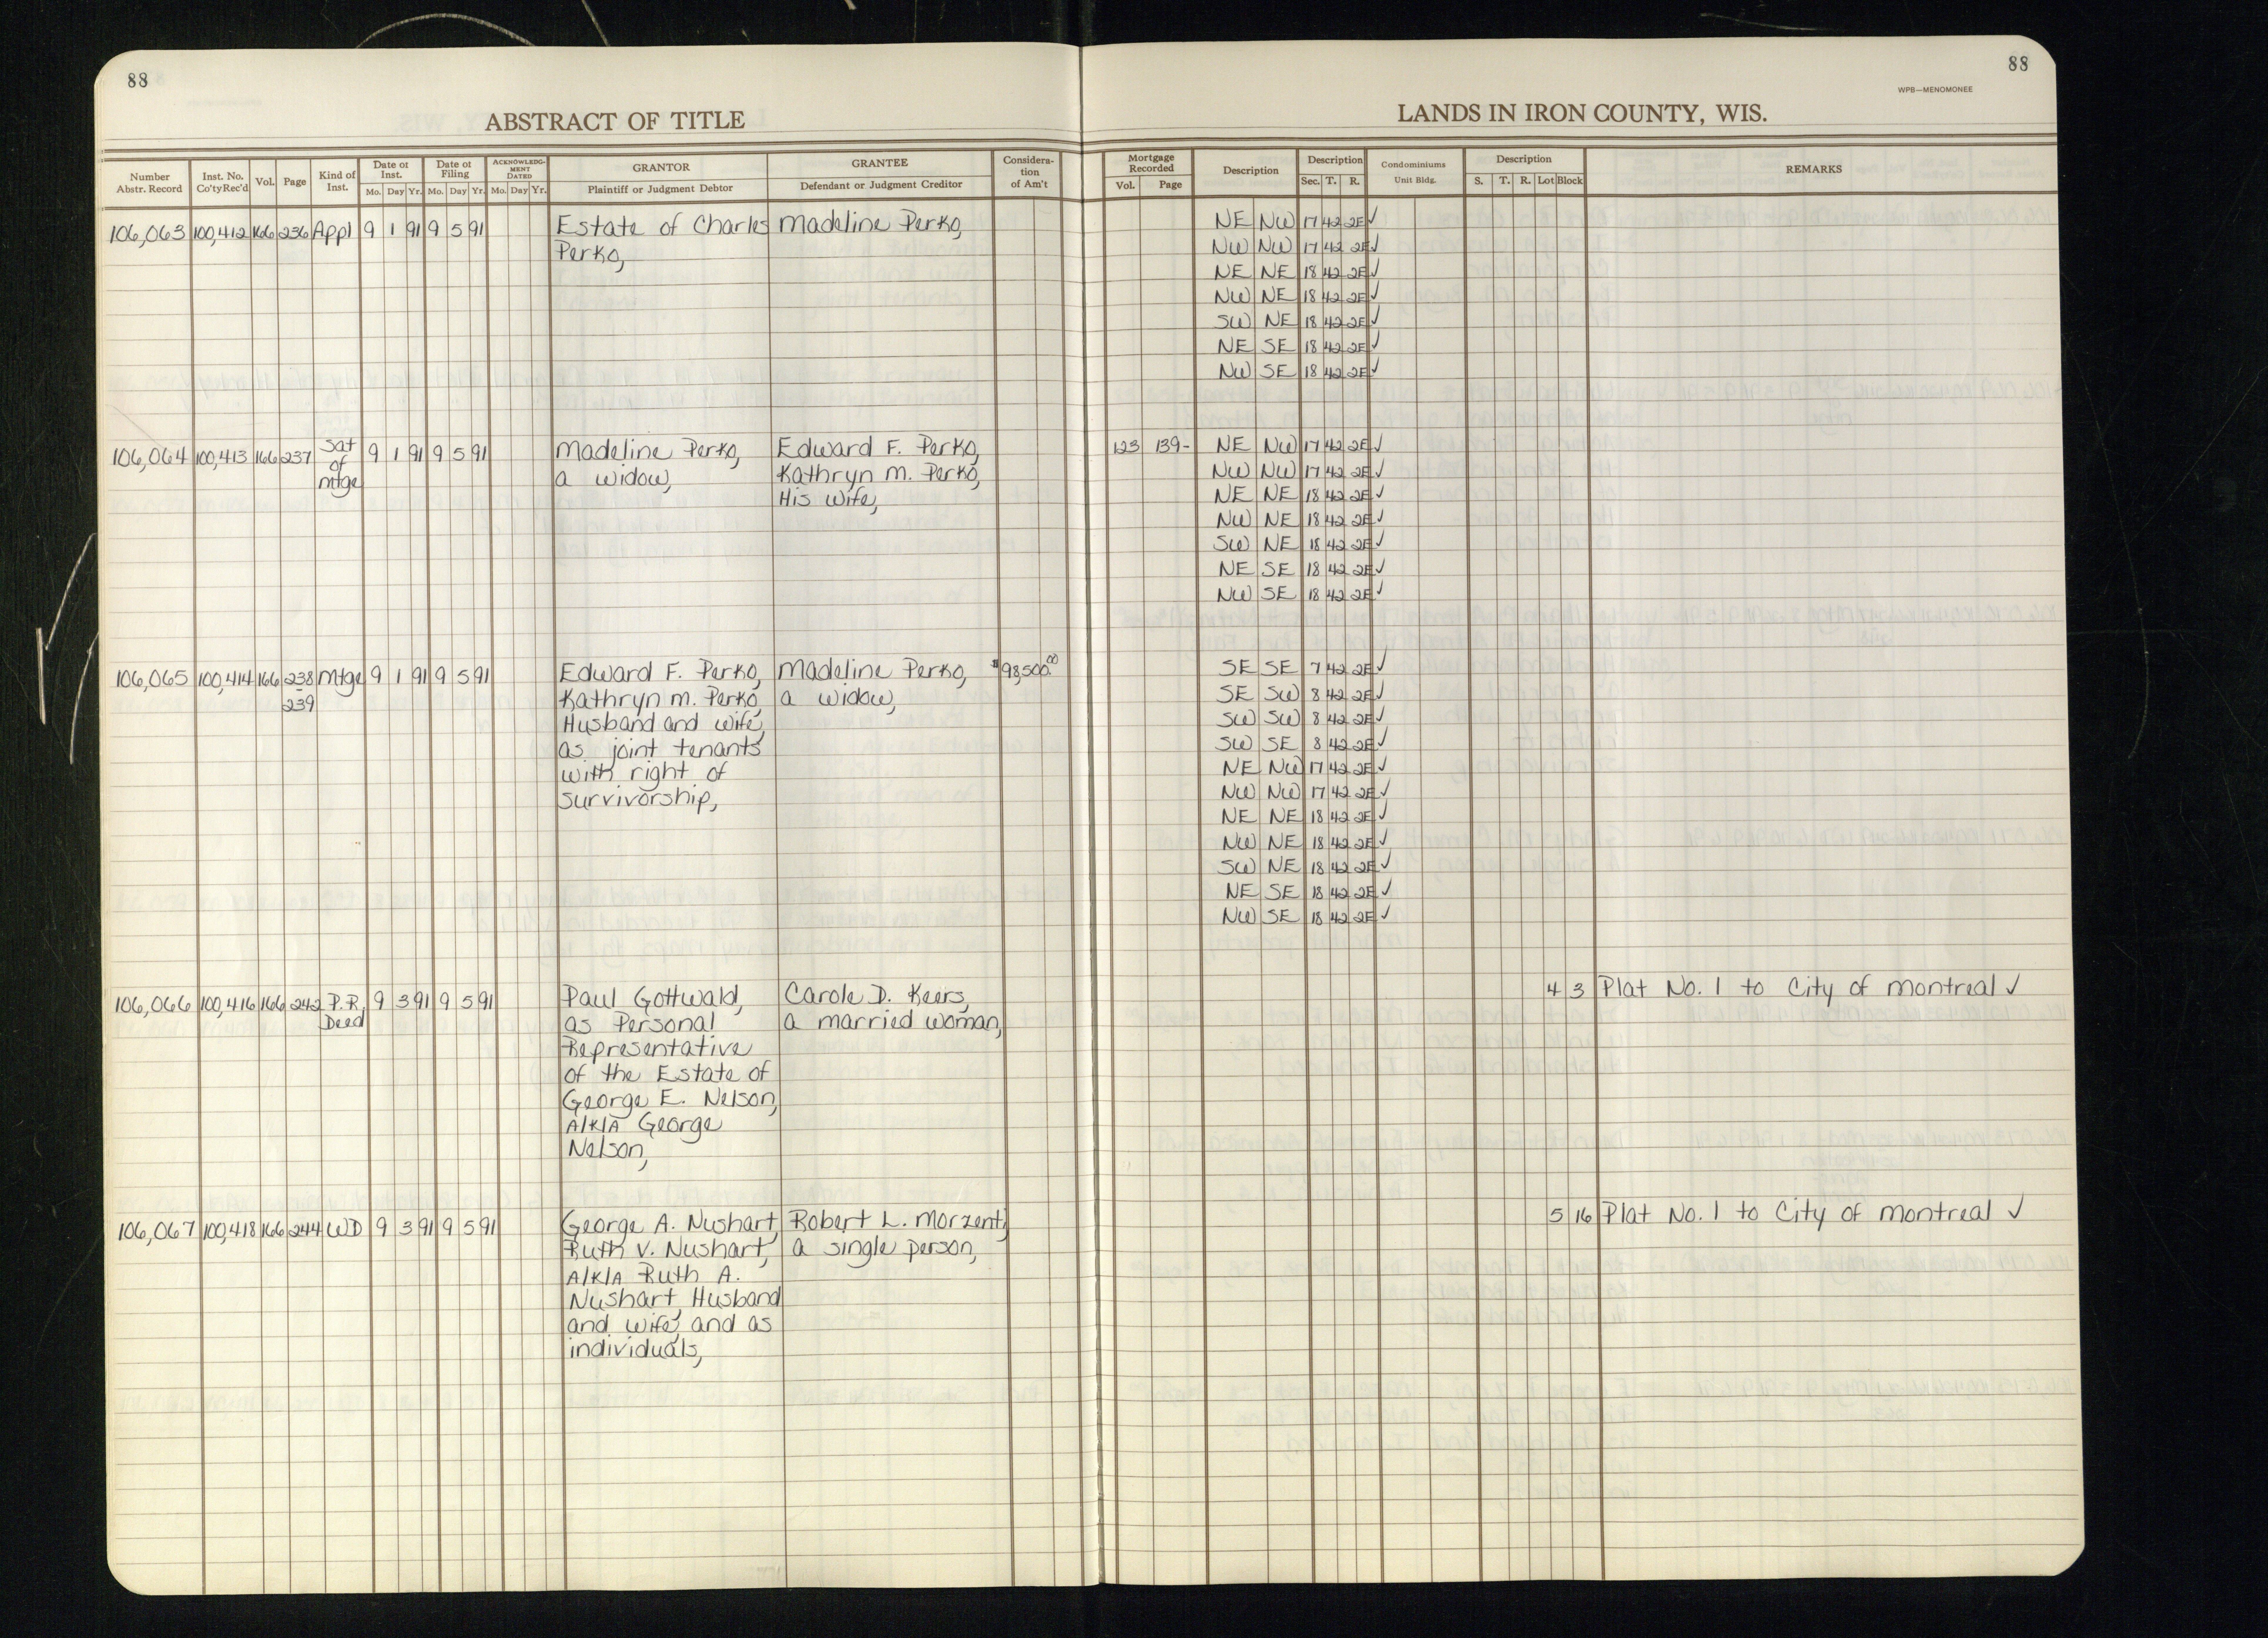 88
88
WPB—MENOMONEE
ABSTRACT OF TITLE
LANDS IN IRON COUNTY, WIS.
Number Abstr. Record | Inst. No. Co'ty Rec'd | Vol. | Page | Kind of Inst. | Date of Inst. Mo. Day Yr. | Date of Filing Mo. Day Yr. | ACKNOWLEDGMENT DATED Mo. Day Yr. | GRANTOR Plaintiff or Judgment Debtor | GRANTEE Defendant or Judgment Creditor | Consideration of Am't | Mortgage Recorded Vol. Page | Description | Description Sec. T. R. | Condominiums Unit Bldg. | Description S. T. R. Lot Block | REMARKS
106,063 100,412 166 236 Appl 9 1 91 9 5 91 Estate of Charles Madeline Perko, NE NW 17 42 2E ✓
Perko, NW NW 17 42 2E ✓
NE NE 18 42 2E ✓
NW NE 18 42 2E ✓
SW NE 18 42 2E ✓
NE SE 18 42 2E ✓
NW SE 18 42 2E ✓
106,064 100,413 166 237 Sat 9 1 91 9 5 91 Madeline Perko, Edward F. Perko, 123 139- NE NW 17 42 2E ✓
of a widow, Kathryn M. Perko, NW NW 17 42 2E ✓
mtge His Wife, NE NE 18 42 2E ✓
NW NE 18 42 2E ✓
SW NE 18 42 2E ✓
NE SE 18 42 2E ✓
NW SE 18 42 2E ✓
106,065 100,414 166 238 Mtge 9 1 91 9 5 91 Edward F. Perko, Madeline Perko, $98,500.00 SE SE 7 42 2E ✓
239 Kathryn M. Perko, a widow, SE SW 8 42 2E ✓
Husband and wife, SW SW 8 42 2E ✓
as joint tenants SW SE 8 42 2E ✓
with right of NE NW 17 42 2E ✓
survivorship, NW NW 17 42 2E ✓
NE NE 18 42 2E ✓
NW NE 18 42 2E ✓
SW NE 18 42 2E ✓
NE SE 18 42 2E ✓
NW SE 18 42 2E ✓
106,066 100,416 166 242 P.R. 9 3 91 9 5 91 Paul Gottwald, Carole D. Keers, 4 3 Plat No. 1 to City of Montreal ✓
Deed as Personal a married woman,
Representative
of the Estate of
George E. Nelson,
A/K/A George
Nelson,
106,067 100,418 166 244 WD 9 3 91 9 5 91 George A. Nushart, Robert L. Morzenti, 5 16 Plat No. 1 to City of Montreal ✓
Ruth V. Nushart, a single person,
A/K/A Ruth A.
Nushart, Husband
and wife, and as
individuals,